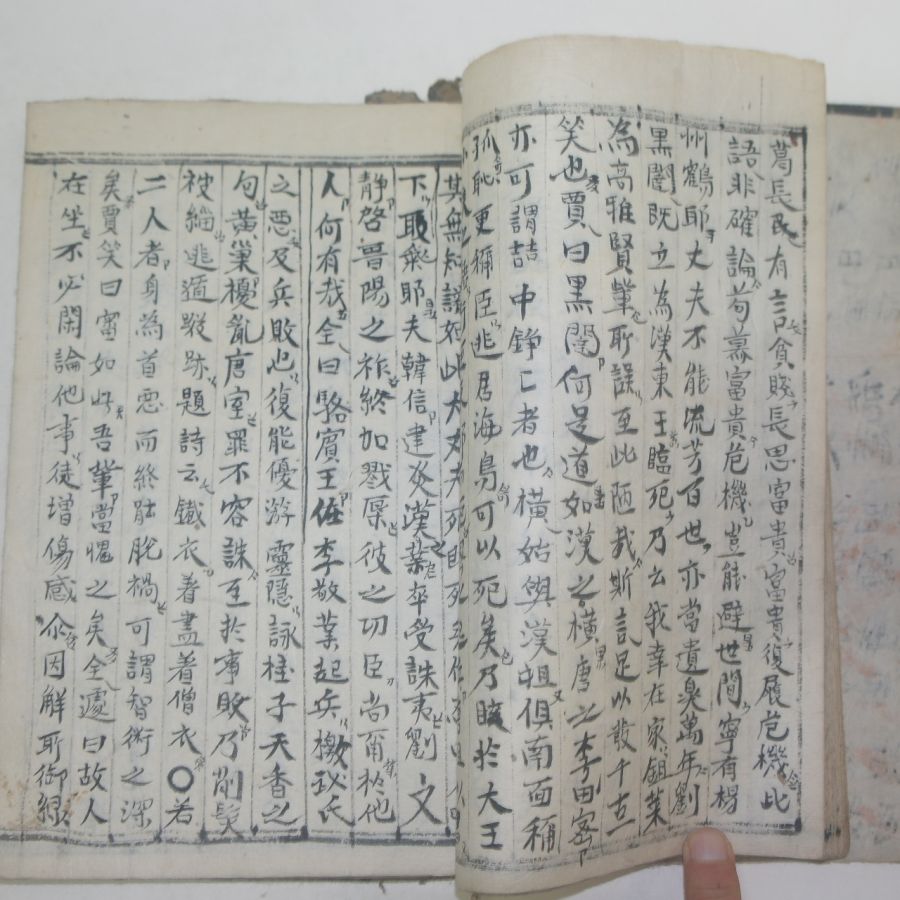 葛長民有言貧賤長思富貴富貴復履危機此
語非確論苟慕富貴危機豈能避世間寧有楊
州鶴耶丈夫不能流芳百世亦當遺臭萬年劉
黑闥既立為漢東王臨死乃云我幸在家鉏菜
為高雅賢輩所誤至此陋哉斯言足以發千古一
笑也賈曰黑闥何足道如漢之橫唐之李田密
亦可謂喆中錚〻者也橫始與漢祖俱南面稱
孤恥更稱臣逃居海島可以死矣乃眩於大王
其無知議如此大丈夫死即死
下取氣耶夫韓信建炎漢業卒受誅夷劉文
靜啓晉陽之祚終加戮屠彼之功臣尚爾於他
人何有哉全曰駱賓王佐李敬業起兵檄武氏
之惡及兵敗也復能優游靈隱詠桂子天香之
句黃巢擾亂唐室罪不容誅至於事敗乃削髮
被緇逃遁蹤跡題詩云鐵衣着盡着僧衣○若
二人者身為首惡而終能脫禍可謂智術之深
矣賈笑曰審如此吾輩當愧之矣全遽曰故人
在坐不必閑論他事徒增傷感尒因解所御綠